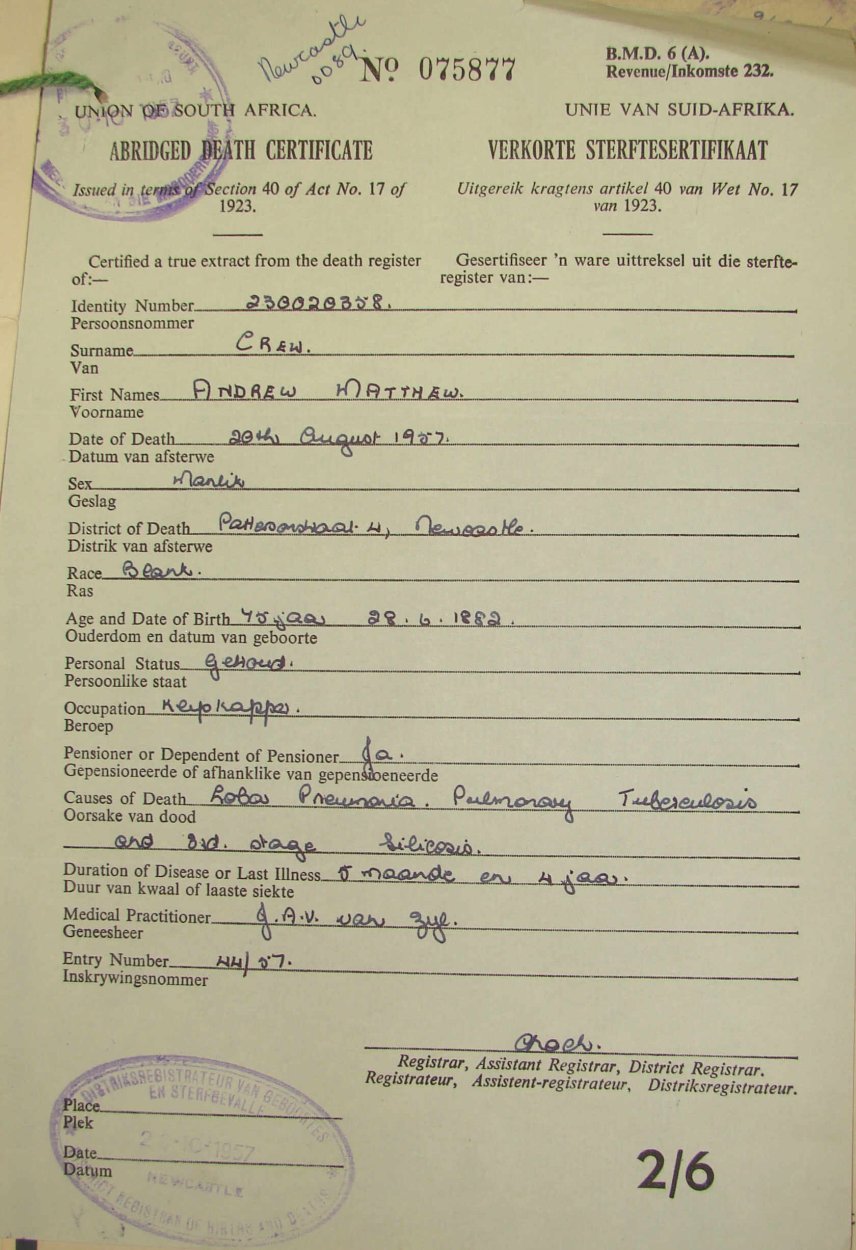 Newcastle
0089.
Nº 075877
B.M.D. 6 (A).
Revenue/Inkomste 232.
UNION OF SOUTH AFRICA.
UNIE VAN SUID-AFRIKA.
ABRIDGED DEATH CERTIFICATE
VERKORTE STERFTESERTIFIKAAT
Issued in terms of Section 40 of Act No. 17 of
1923.
Uitgereik kragtens artikel 40 van Wet No. 17
van 1923.
Certified a true extract from the death register
of:—
Gesertifiseer 'n ware uittreksel uit die sterfte-
register van:—
Identity Number 230020358.
Persoonsnommer
Surname CREW.
Van
First Names ANDREW MATTHEW.
Voorname
Date of Death 20th August 1957.
Datum van afsterwe
Sex Manlik
Geslag
District of Death Pattersonstraat 4, Newcastle.
Distrik van afsterwe
Race Blank.
Ras
Age and Date of Birth 75 jaar 28.6.1882.
Ouderdom en datum van geboorte
Personal Status Getroud.
Persoonlike staat
Occupation
Beroep
Pensioner or Dependent of Pensioner Ja.
Gepensioneerde of afhanklike van gepensioeneerde
Causes of Death Lobar Pneumonia. Pulmonary Tuberculosis
Oorsake van dood
and 3rd. stage Silicosis.
Duration of Disease or Last Illness 5 maande en 4 jaar.
Duur van kwaal of laaste siekte
Medical Practitioner J.A.V. van Zyl.
Geneesheer
Entry Number 44/57.
Inskrywingsnommer
Registrar, Assistant Registrar, District Registrar.
Registrateur, Assistent-registrateur, Distriksregistrateur.
DISTRIKSREGISTRATEUR VAN GEBOORTES
EN STERFGEVALLE
Place
Plek
-10-1957
Date
Datum
NEWCASTLE
DISTRICT REGISTRAR OF BIRTHS AND DEATHS
2/6